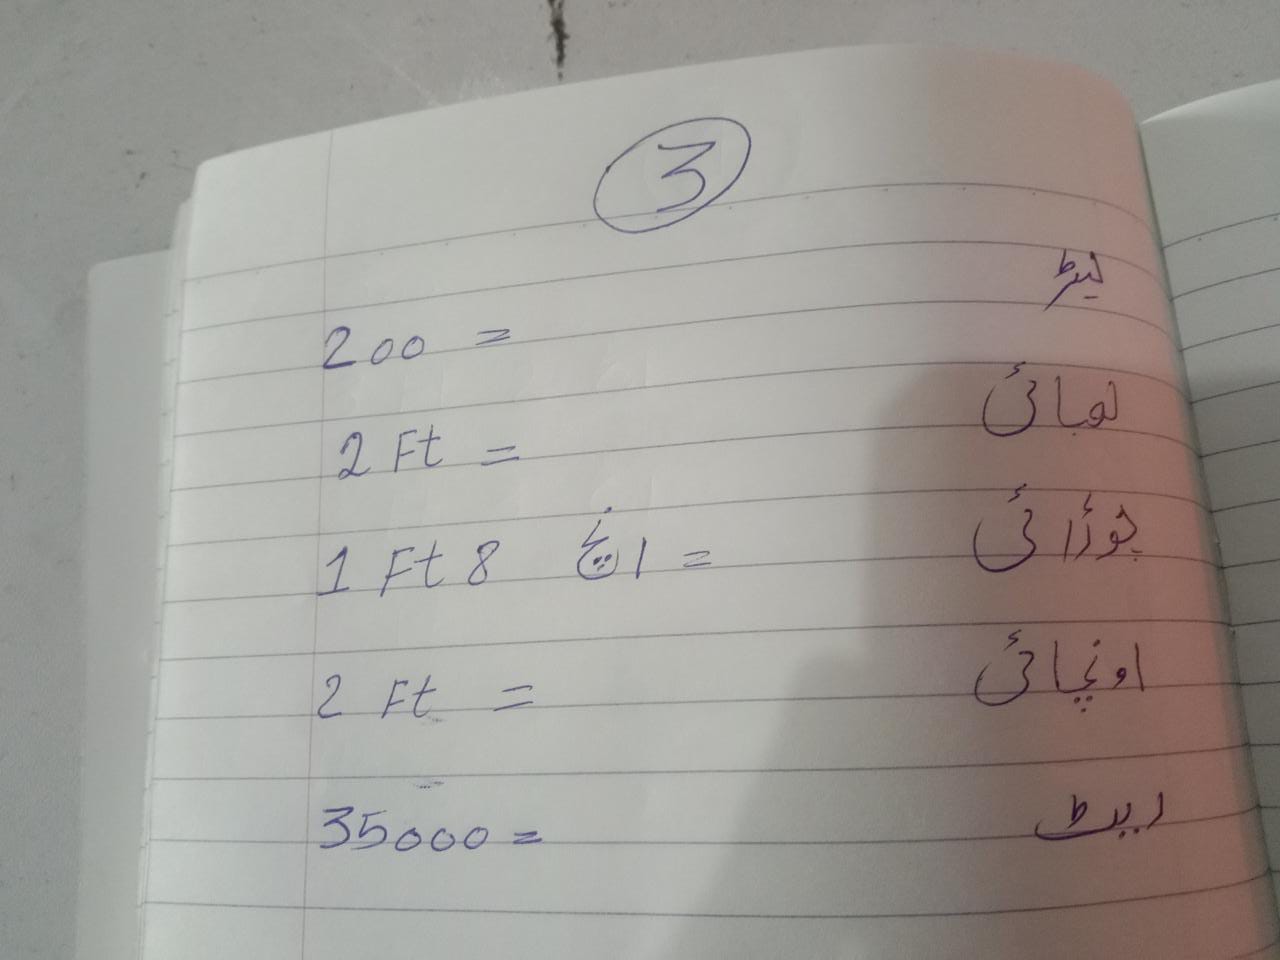 3
لیٹر
200 =
لمبائی
2 Ft =
چوڑائی
1 Ft 8 انچ =
اونچائی
2 Ft =
ریٹ
35000 =